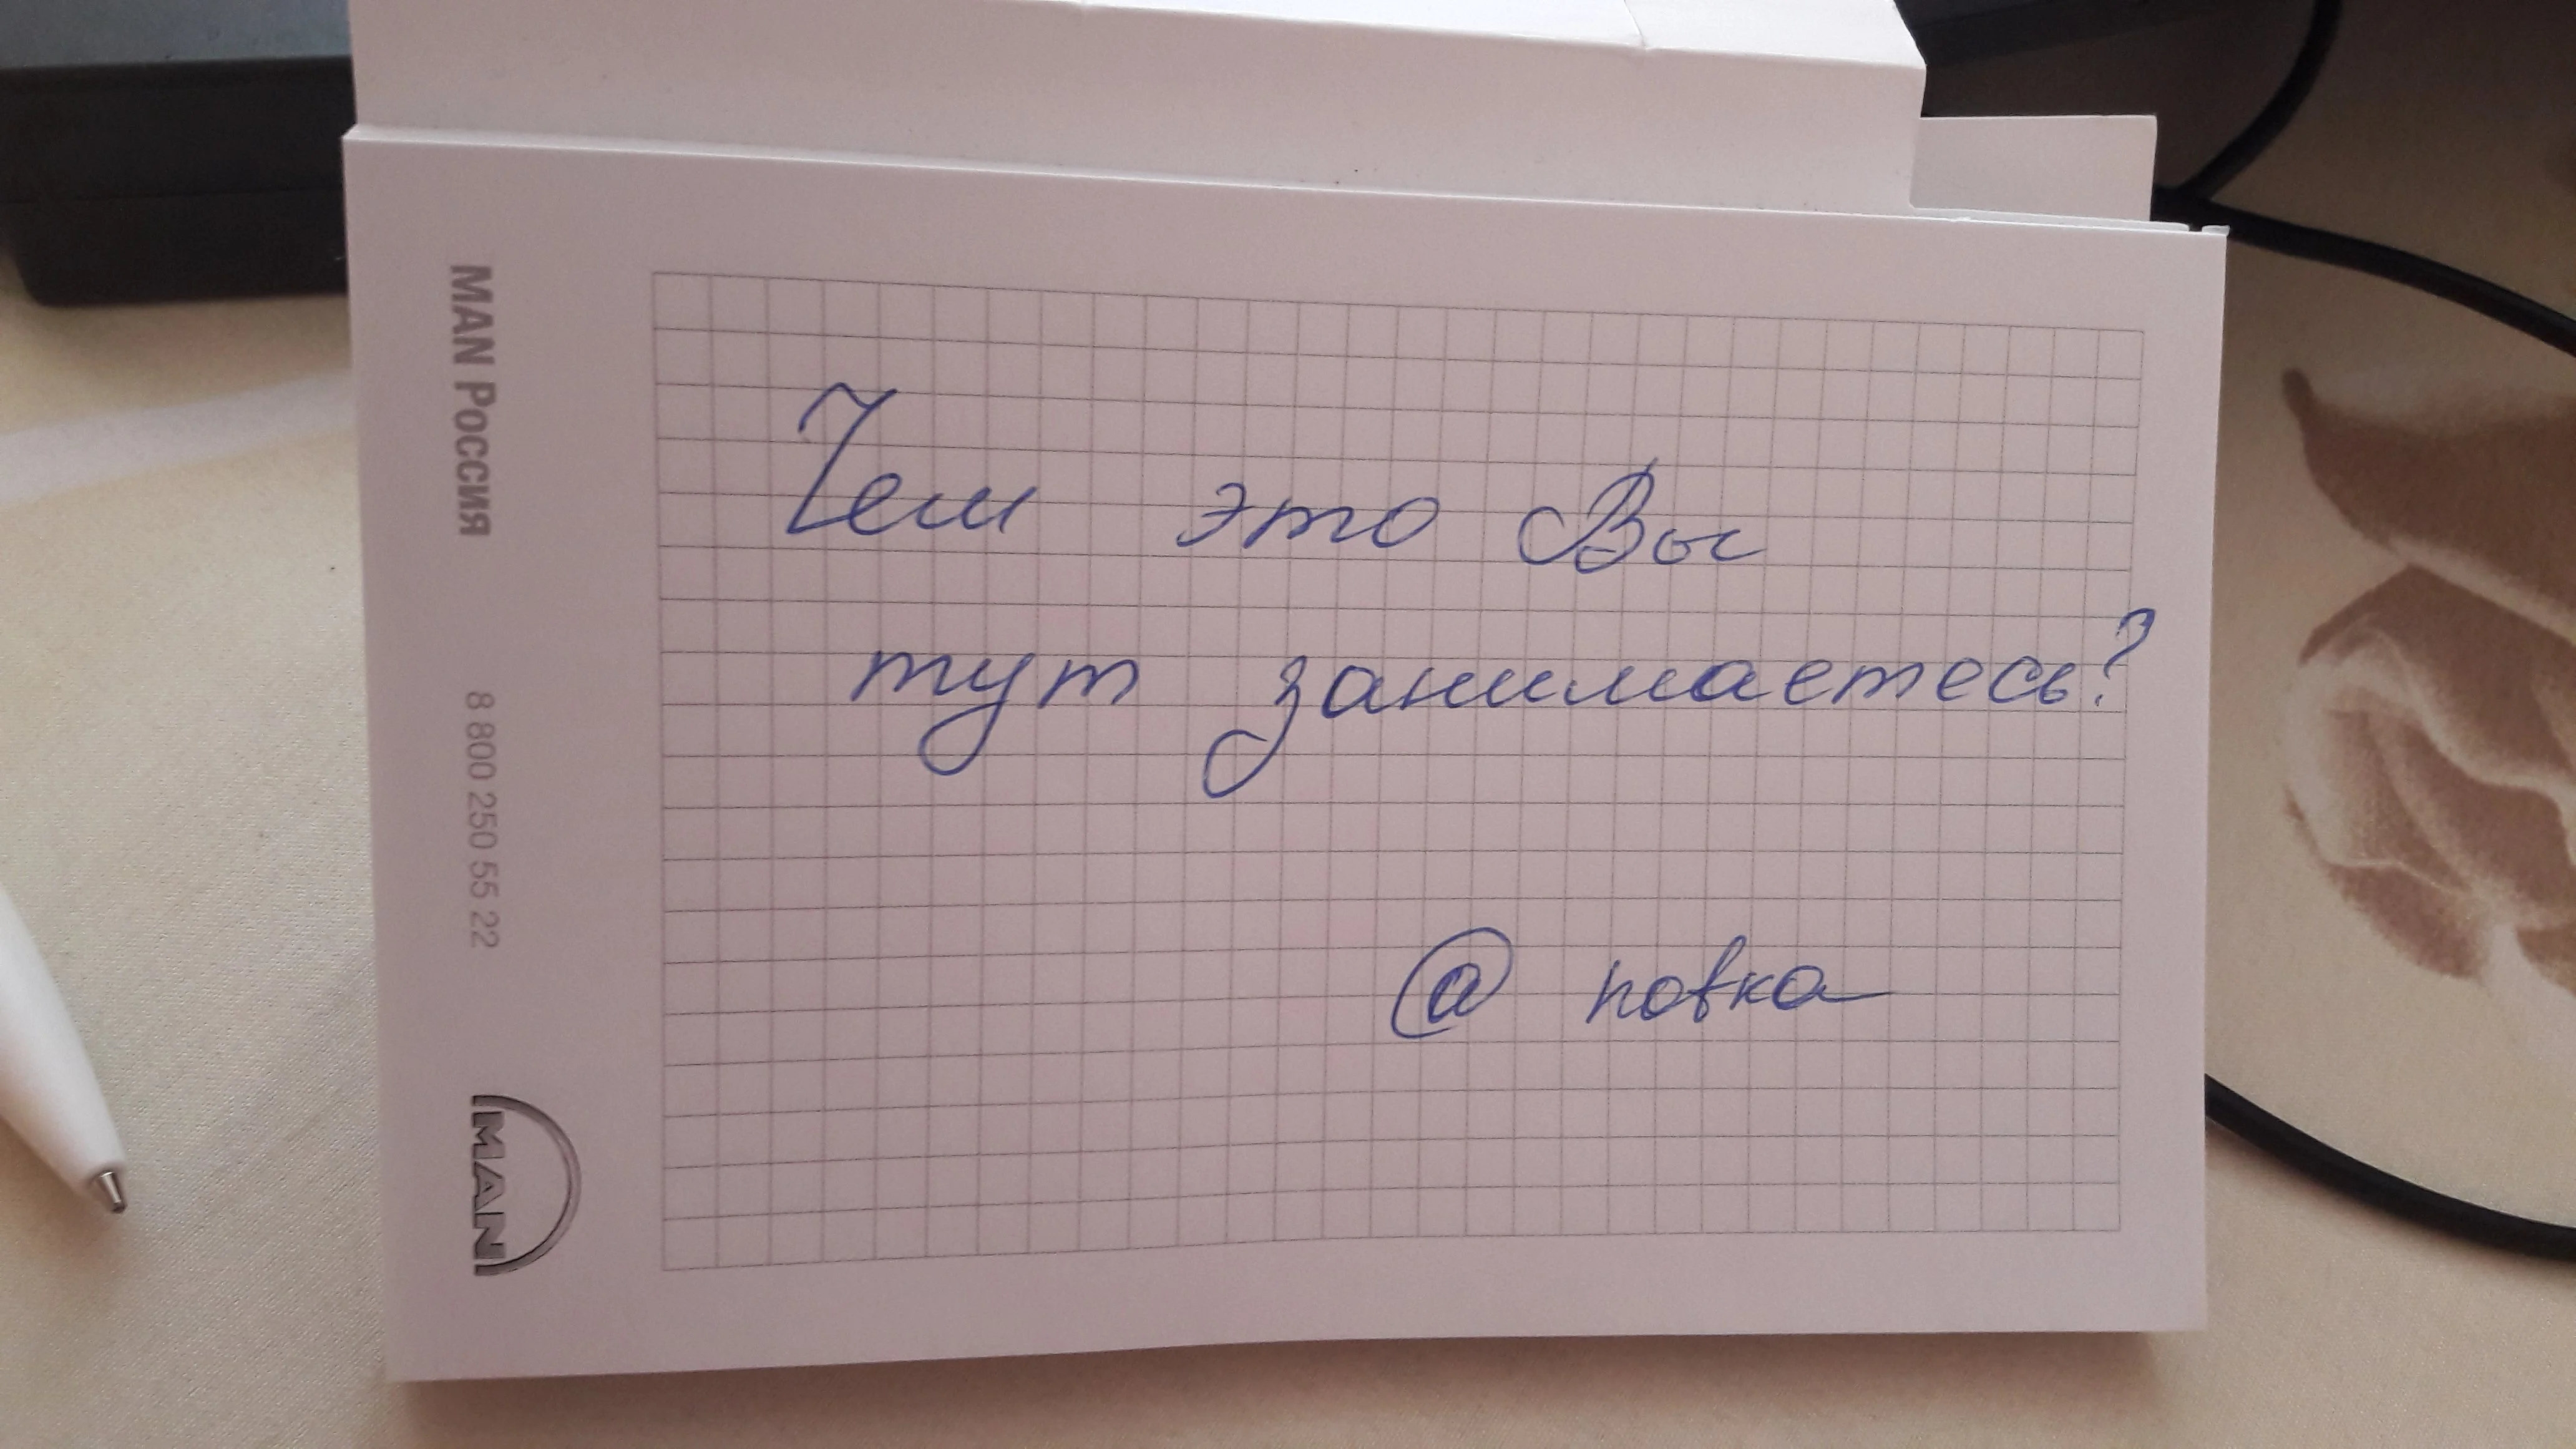 Чем это Вы
тут занимаетесь?
@ новка
MAN Россия
8 800 250 55 22
MAN